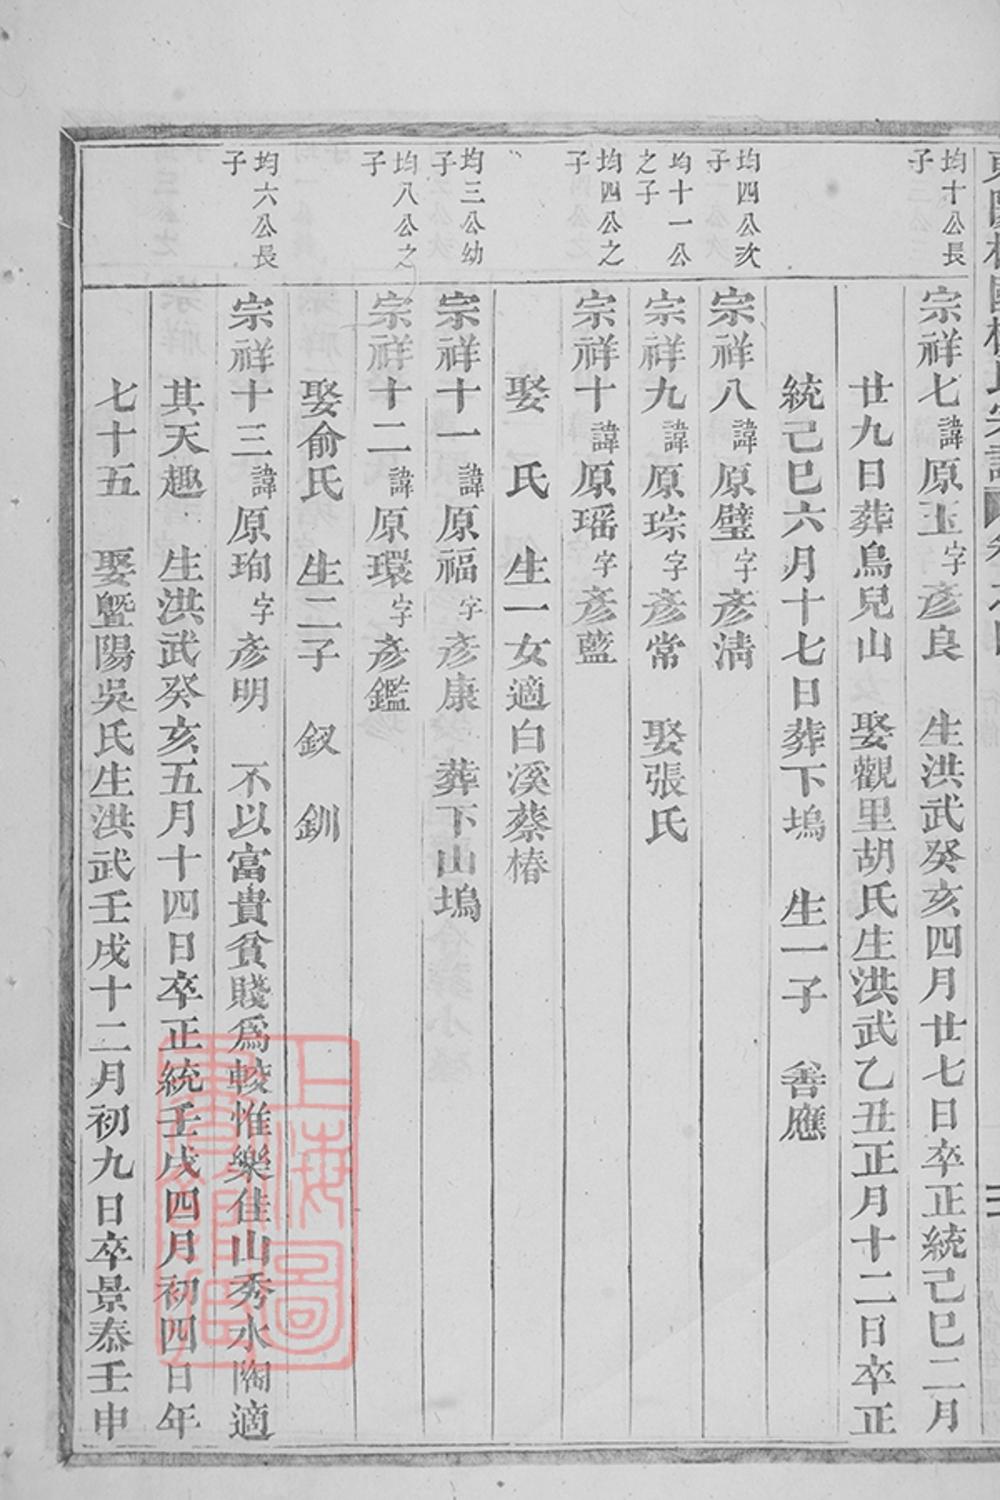 均十公長子
宗祥七諱原玉字彥良 生洪武癸亥四月廿七日卒正統己巳二月
廿九日葬鳥兒山 娶觀里胡氏生洪武乙丑正月十二日卒正
統己巳六月十七日葬下塢 生一子 善應
均四公次子
宗祥八諱原璧字彥清
均十一公之子
宗祥九諱原琮字彥常 娶張氏
均四公之子
宗祥十諱原瑶字彥藍
娶 氏 生一女適白溪蔡椿
均三公幼子
宗祥十一諱原福字彥康 葬下山塢
均八公之子
宗祥十二諱原環字彥鑑
娶俞氏 生二子 釵 釧
均六公長子
宗祥十三諱原珣字彥明 不以富貴貧賤爲較惟樂佳山秀水陶適
其天趣 生洪武癸亥五月十四日卒正統壬戌四月初四日年
七十五 娶暨陽吳氏生洪武壬戌十二月初九日卒景泰壬申
上海圖書館藏